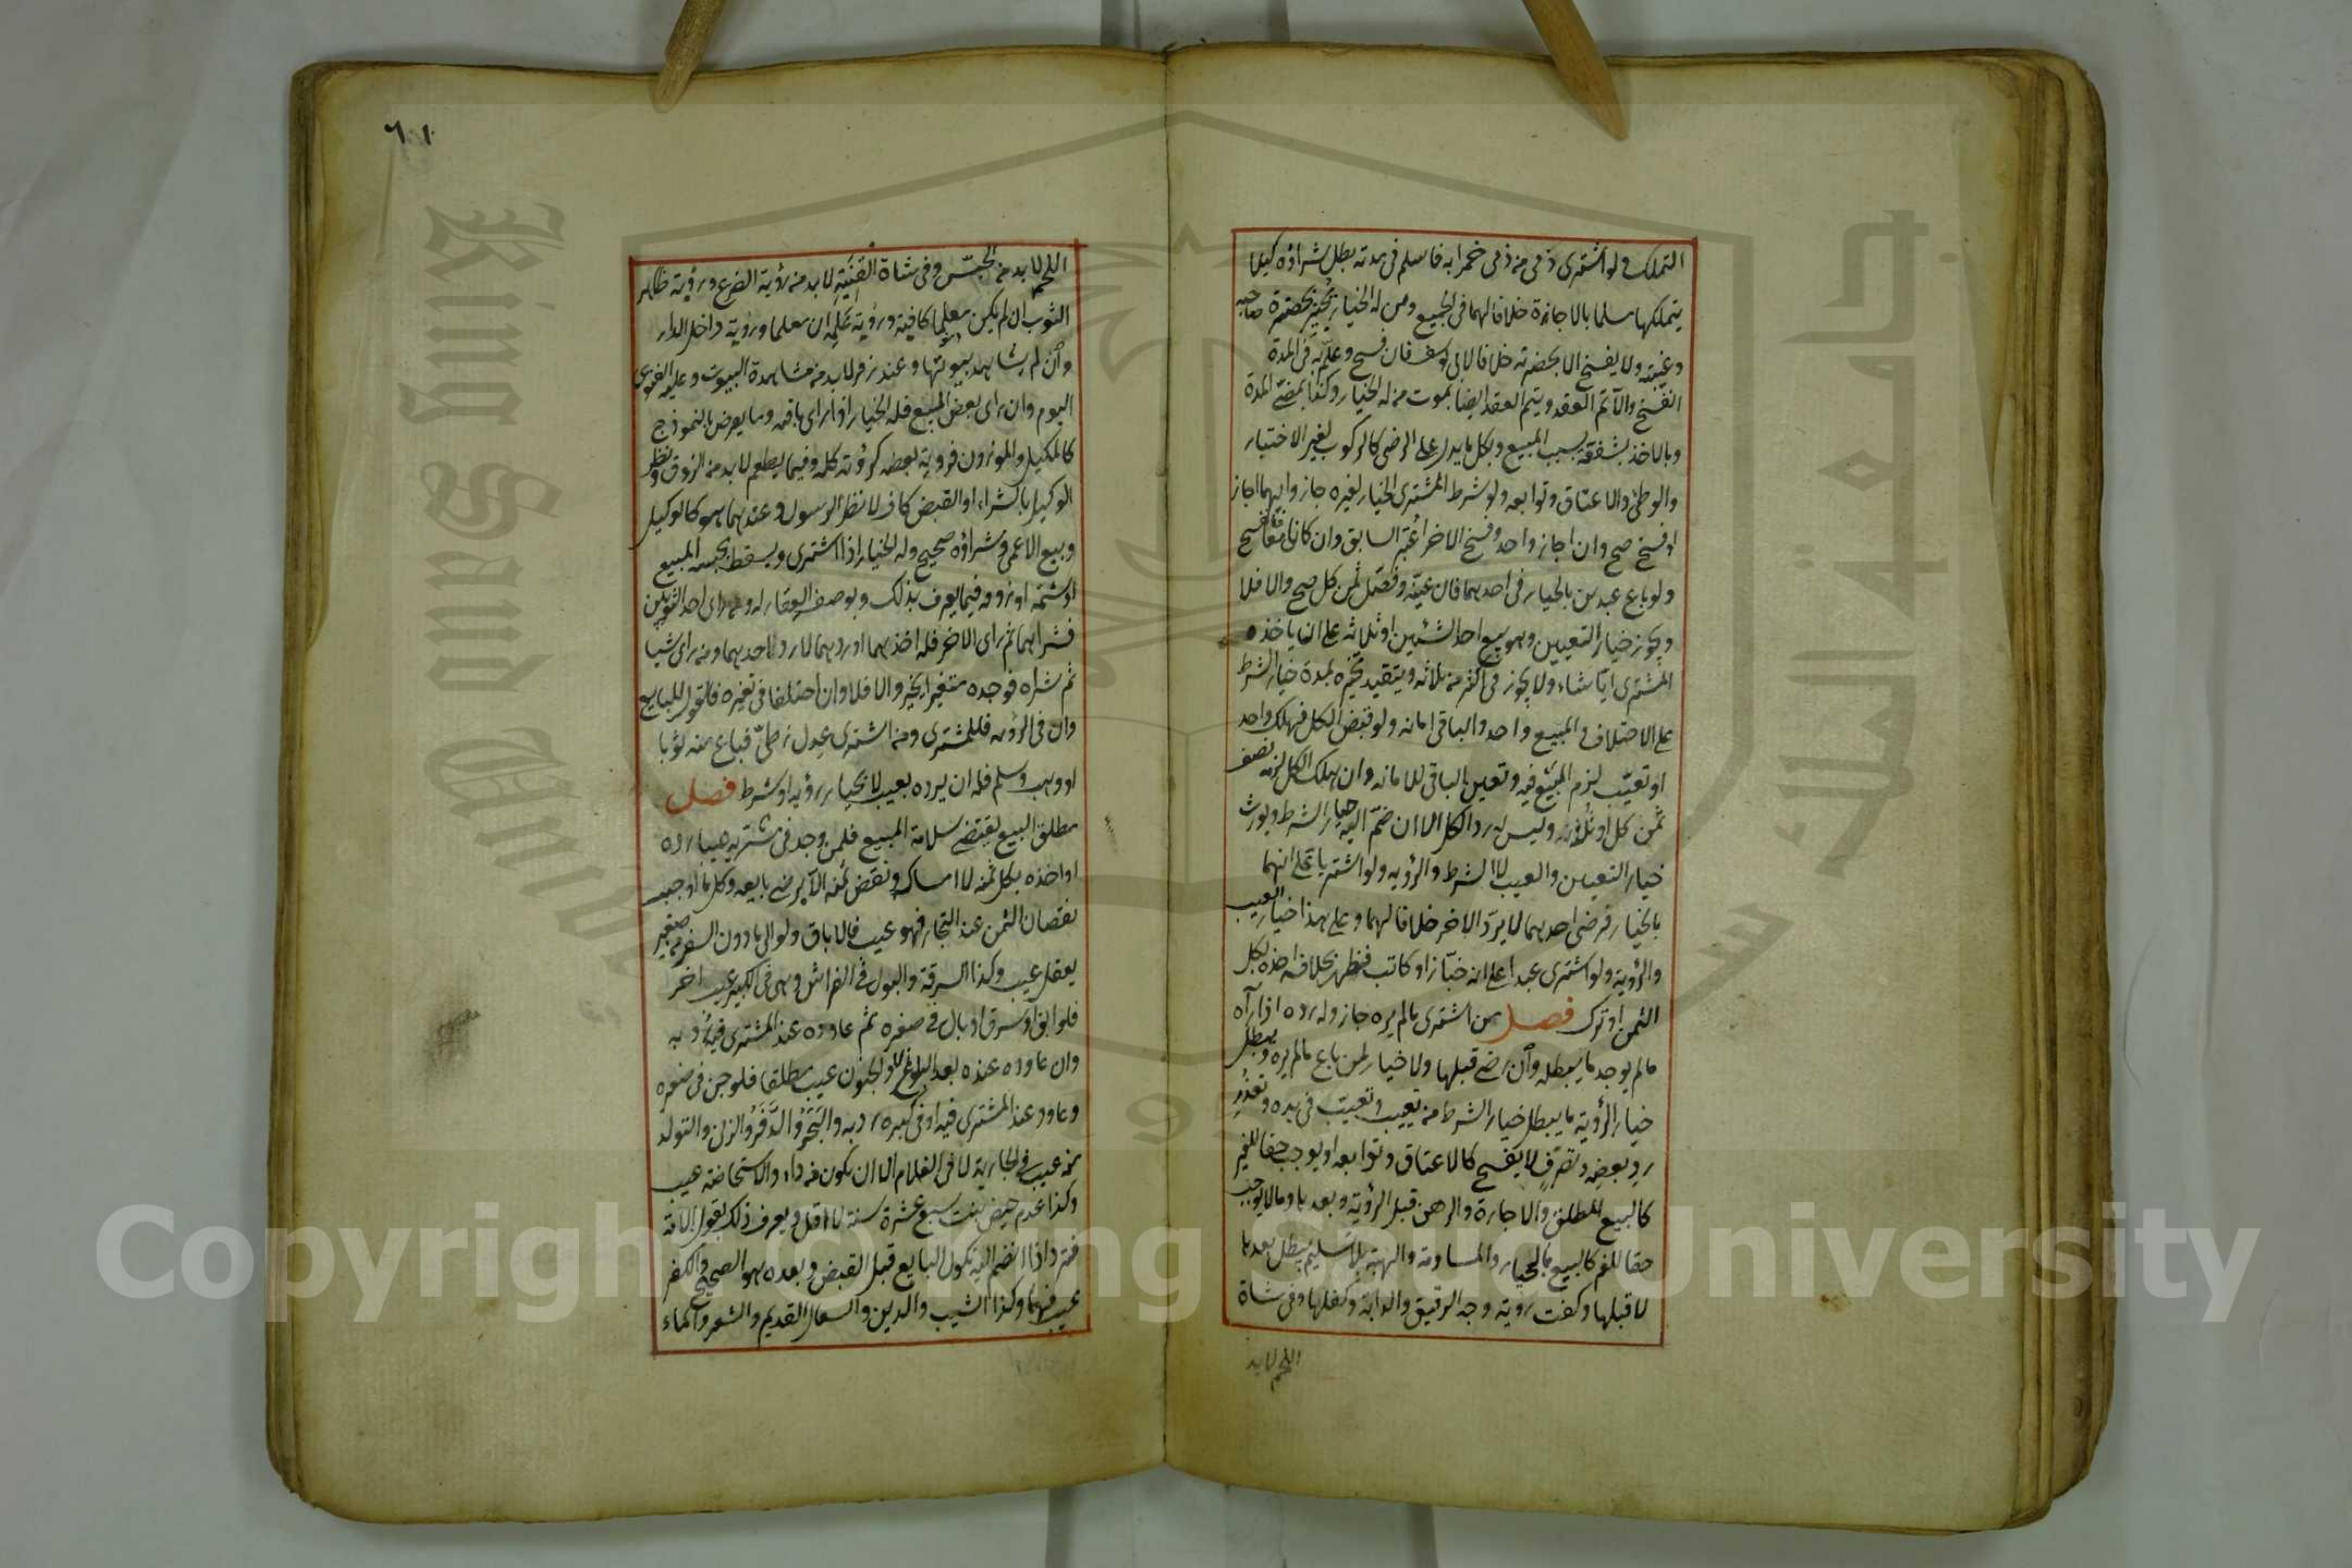 التملك ولو اشترى ذمى من ذمى خمرا به فاسلم فى مدته بطل شراؤه كيلا
يتملكها مسلما بالاجازة خلافا لهما فى الجميع ومن له الخيار يجيز بحضرة صاحبه
وغيبته ولا يفسخ الا بحضرته خلافا لابى يوسف فان فسخ وعلم به فى المدة
انفسخ والا تم العقد ويتم العقد ايضا بموت من له الخيار وكذا بمضى المدة
وبالاخذ بشفعة بسبب المبيع وبكل ما يدل على الرضى كالركوب لغير الاختبار
والوطئ والاعتاق وتوابعه ولو شرط المشترى الخيار لغيره جاز وايهما اجاز
او فسخ صح وان اجاز واحد وفسخ الاخر اعتبر السابق وان كانا معا فالفسخ
ولو باع عبدين بالخيار فى احدهما فان عينه وفصل ثمن كل صح والا فلا
ويجوز خيار التعيين وهو بيع احد الشيئين او ثلاثة على ان ياخذه
المشترى ايا شاء ولا يجوز فى اكثر من ثلاثة ويتقيد تخيره بمدة خيار الشرط
على الاختلاف والمبيع واحد والباقى امانه ولو قبض الكل فهلك واحد
او تعيب لزم المبيع فيه وتعين الباقى للامانه وان هلك الكل لزمه نصف
ثمن كل او ثلثه وليس له رد الكل الا ان ضم اليه خيار الشرط ويورث
خيار التعيين والعيب لا الشرط والرؤيه ولو اشتريا على انهما
بالخيار فرضى احدهما لا يرد الاخر خلافا لهما وعلى هذا خيار العيب
والرؤية ولو اشترى عبدا على انه خباز او كاتب فظهر بخلافه اخذه بكل
الثمن او ترك فصل من اشترى ما لم يره جاز وله رده اذا رآه
ما لم يوجد ما يبطله وان رضى قبلها ولا خيار لمن باع ما لم يره ويبطل
خيار الرؤية ما يبطل خيار الشرط من تعييب وتعيب فى يده وتعذر
رد بعضه وتصرف لا يفسخ كالاعتاق وتوابعه او يوجب حقا للغير
كالبيع المطلق والاجارة والرهن قبل الرؤية وبعدها وما لا يوجب
حقا للغير كالبيع بالخيار والمساومة والهبة بلا تسليم يبطل بعدها
لا قبلها وكفت رؤية وجه الرقيق والدابة وكفلها وفى شاة
اللحم لابد
٦١
اللحم لابد من الجس وفى شاة القنية لابد من رؤية الضرع ورؤية ظاهر
الثوب ان لم يكن معلما كافية ورؤية علمه ان معلما ورؤية داخل الدار
وان لم يشاهد بيوتها وعند زفر لابد من مشاهدة البيوت وعليه الفتوى
اليوم وان راى بعض المبيع فله الخيار اذا راى باقيه وما يعرض بالنموذج
كالمكيل والموزون فرؤية بعضه كرؤية كله وفيما يطعم لابد من الذوق ونظر
الوكيل بالشراء او القبض كاف لا نظر الرسول وعندهما هو كالوكيل
وبيع الاعمى وشراؤه صحيح وله الخيار اذا اشترى ويسقط بجسه المبيع
او شمه او ذوقه فيما يعرف بذلك وبوصف العقار له ومن راى احد الثوبين
فشراهما ثم راى الاخر فله اخذهما او ردهما لا رد احدهما ومن راى شيا
ثم شراه فوجده متغيرا يخير والا فلا وان اختلفا فى تغيره فالقول للبايع
وان فى الرؤيه فللمشترى ومن اشترى عدل زطى فباع منه ثوبا
او وهب وسلم فله ان يرده بعيب لا بخيار رؤيه او شرط فصل
مطلق البيع يقتضى سلامة المبيع فلمن وجد فى مشتريه عيبا رده
او اخذه بكل ثمنه لا امساكه ونقص ثمنه الا برضى بايعه وكل ما اوجب
نقصان الثمن عند التجار فهو عيب فالاباق ولو الى ما دون السفر من صغير
يعقل عيب وكذا السرقة والبول فى الفراش وهى فى الكبير عيب اخر
فلو ابق او سرق او بال فى صغره ثم عاوده عند المشترى فيه رد به
وان عاوده عنده بعد البلوغ لا والجنون عيب مطلقا فلو جن فى صغره
وعاود عند المشترى فيه او فى كبره رد به والبخر والدفر والزنى والتولد
منه عيب فى الجارية لا فى الغلام الا ان يكون من داء والاستحاضة عيب
وكذا عدم حيض بنت سبع عشرة سنة لا اقل ويعرف ذلك بقول الامة
فترد اذا انضم اليه نكول البايع قبل القبض وبعده هو الصحيح والكفر
عيب فيهما وكذا الشيب والدين والسعال القديم والشعر والماء
King Saud University
Copyright © King Saud University